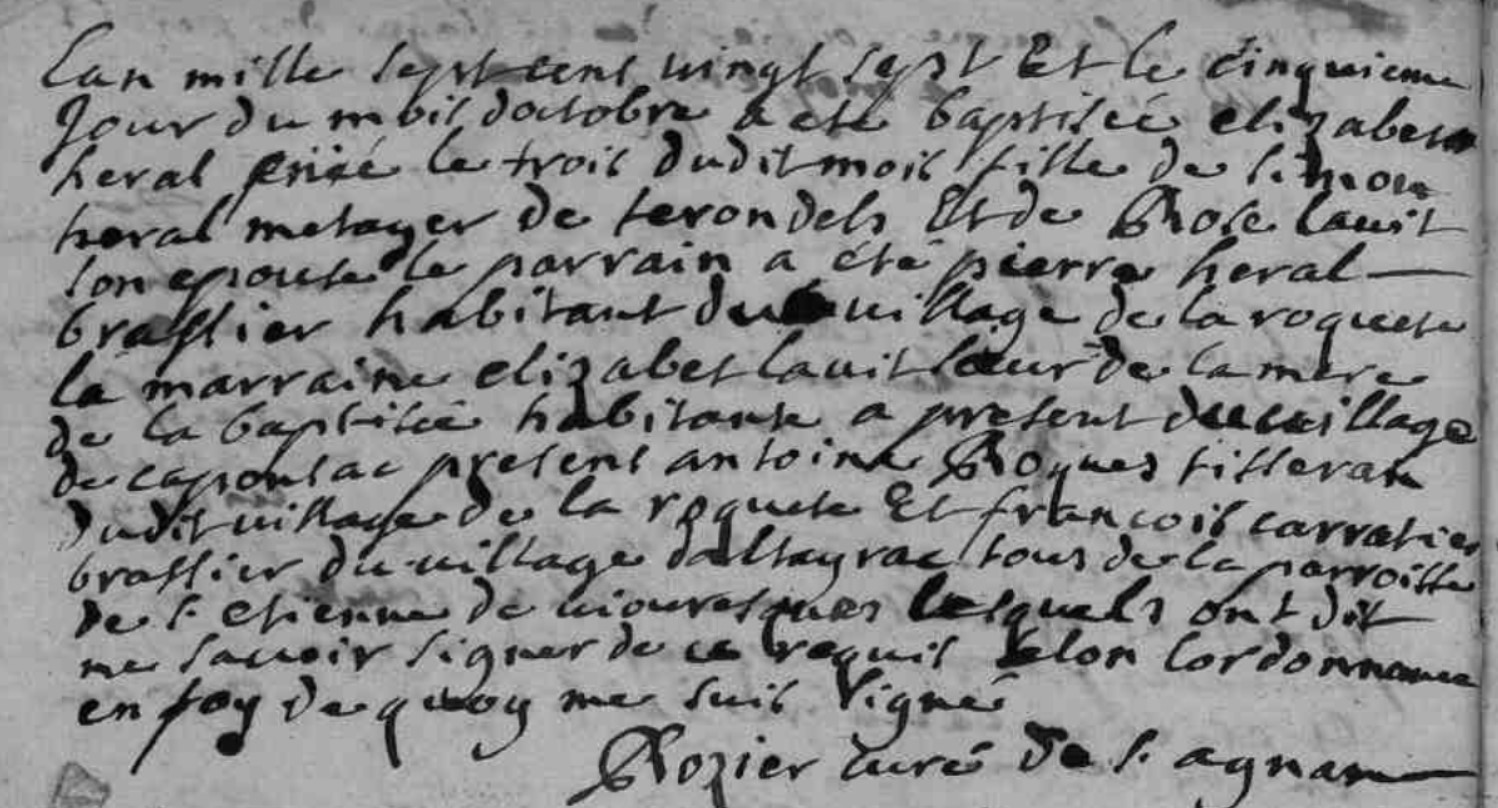 Lan mille sept cens vingt sept Et le cinquieme
Jour du mois doctobre a ete baptisée elizabeth
heral née le trois dudit mois fille de simon
heral metayer de terondels Et de Rose lavit
son epouse le parrain a été pierre heral
brassier habitant du village de la roquete
la marraine elizabet lavit sœur de la mere
de la baptisée habitante a present du village
de capoulac present antoine Roques tisseran
dudit village de la roquete Et francois carratier
brassier du village daltayrac tous de la parroisse
de s. etienne de viouresques lesquels ont dit
ne savoir signer de ce requis selon lordonnance
en foy de quoy me suis signé
Rozier curé de s. agnan